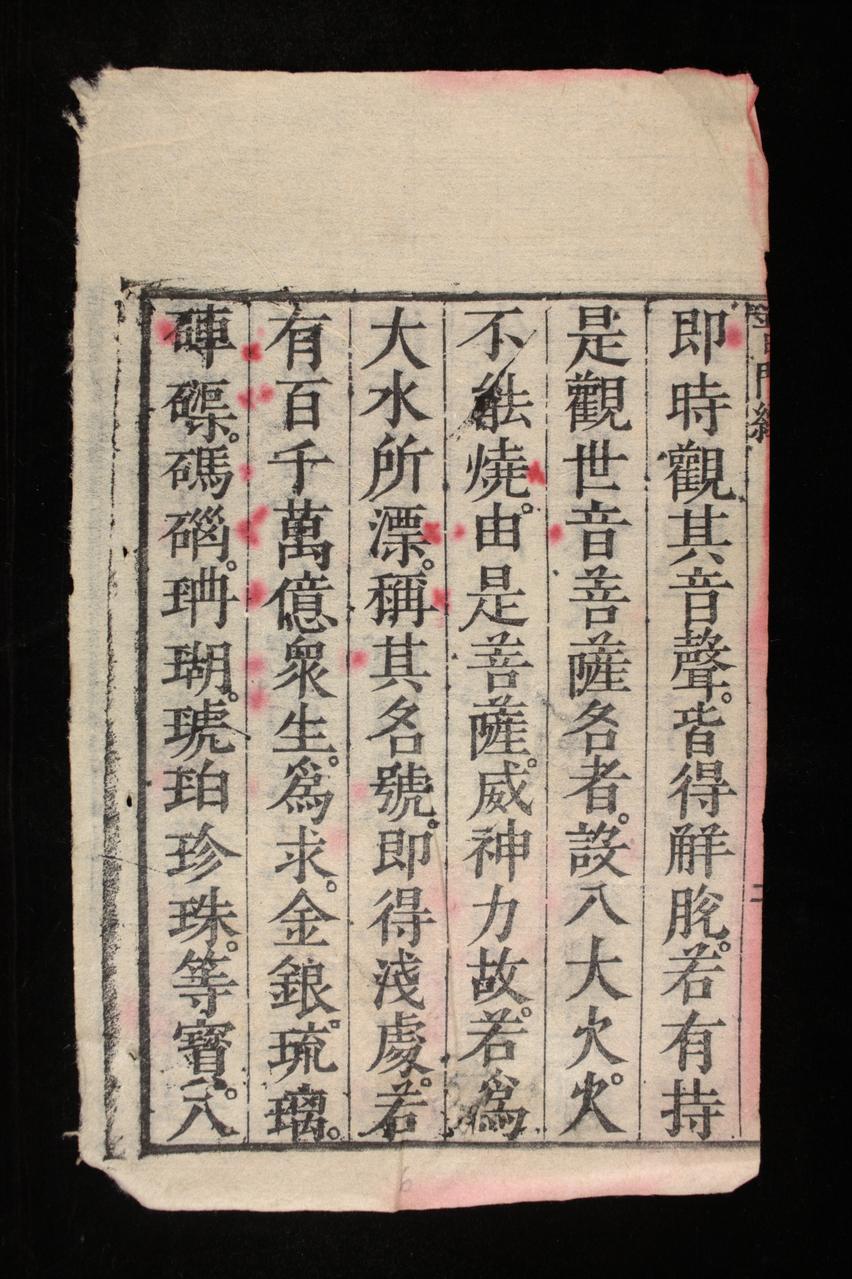 門經
二
即時觀其音聲。皆得解脫。若有持
是觀世音菩薩名者。設入大火。火
不能燒。由是菩薩威神力故。若為
大水所漂。稱其名號。即得淺處。若
有百千萬億衆生。為求。金銀。琉璃。
硨磲。碼碯。珊瑚。琥珀珍珠。等寶。入